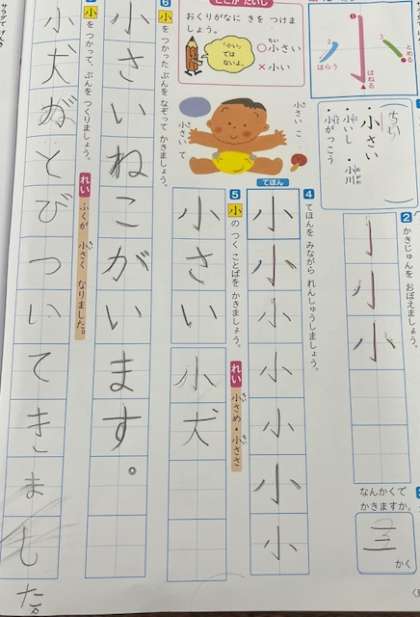 どこが だいじ
おくりがなに きを つけましょう。
「小い」ではないよ。
○小さい
×小い
とめる
はねる
はらう
ちい
・小さい
・小いし
・小川
・小がっこう
2
かきじゅんを おぼえましょう。
亅
小
なんかくで かきますか。
三
かく
小さい こ
小さい て
てほん
4
てほんを みながら れんしゅうしましょう。
小
小
小
小
小
小
小
5
小の つく ことばを かきましょう。
れい
小さめ・小ざさ
小さい
小犬
6
小を つかった ぶんを なぞって かきましょう。
小さいねこがいます。
小を つかって、ぶんを つくりましょう。
れい
ふくが 小さく なりました。
小犬がとびついてきました。